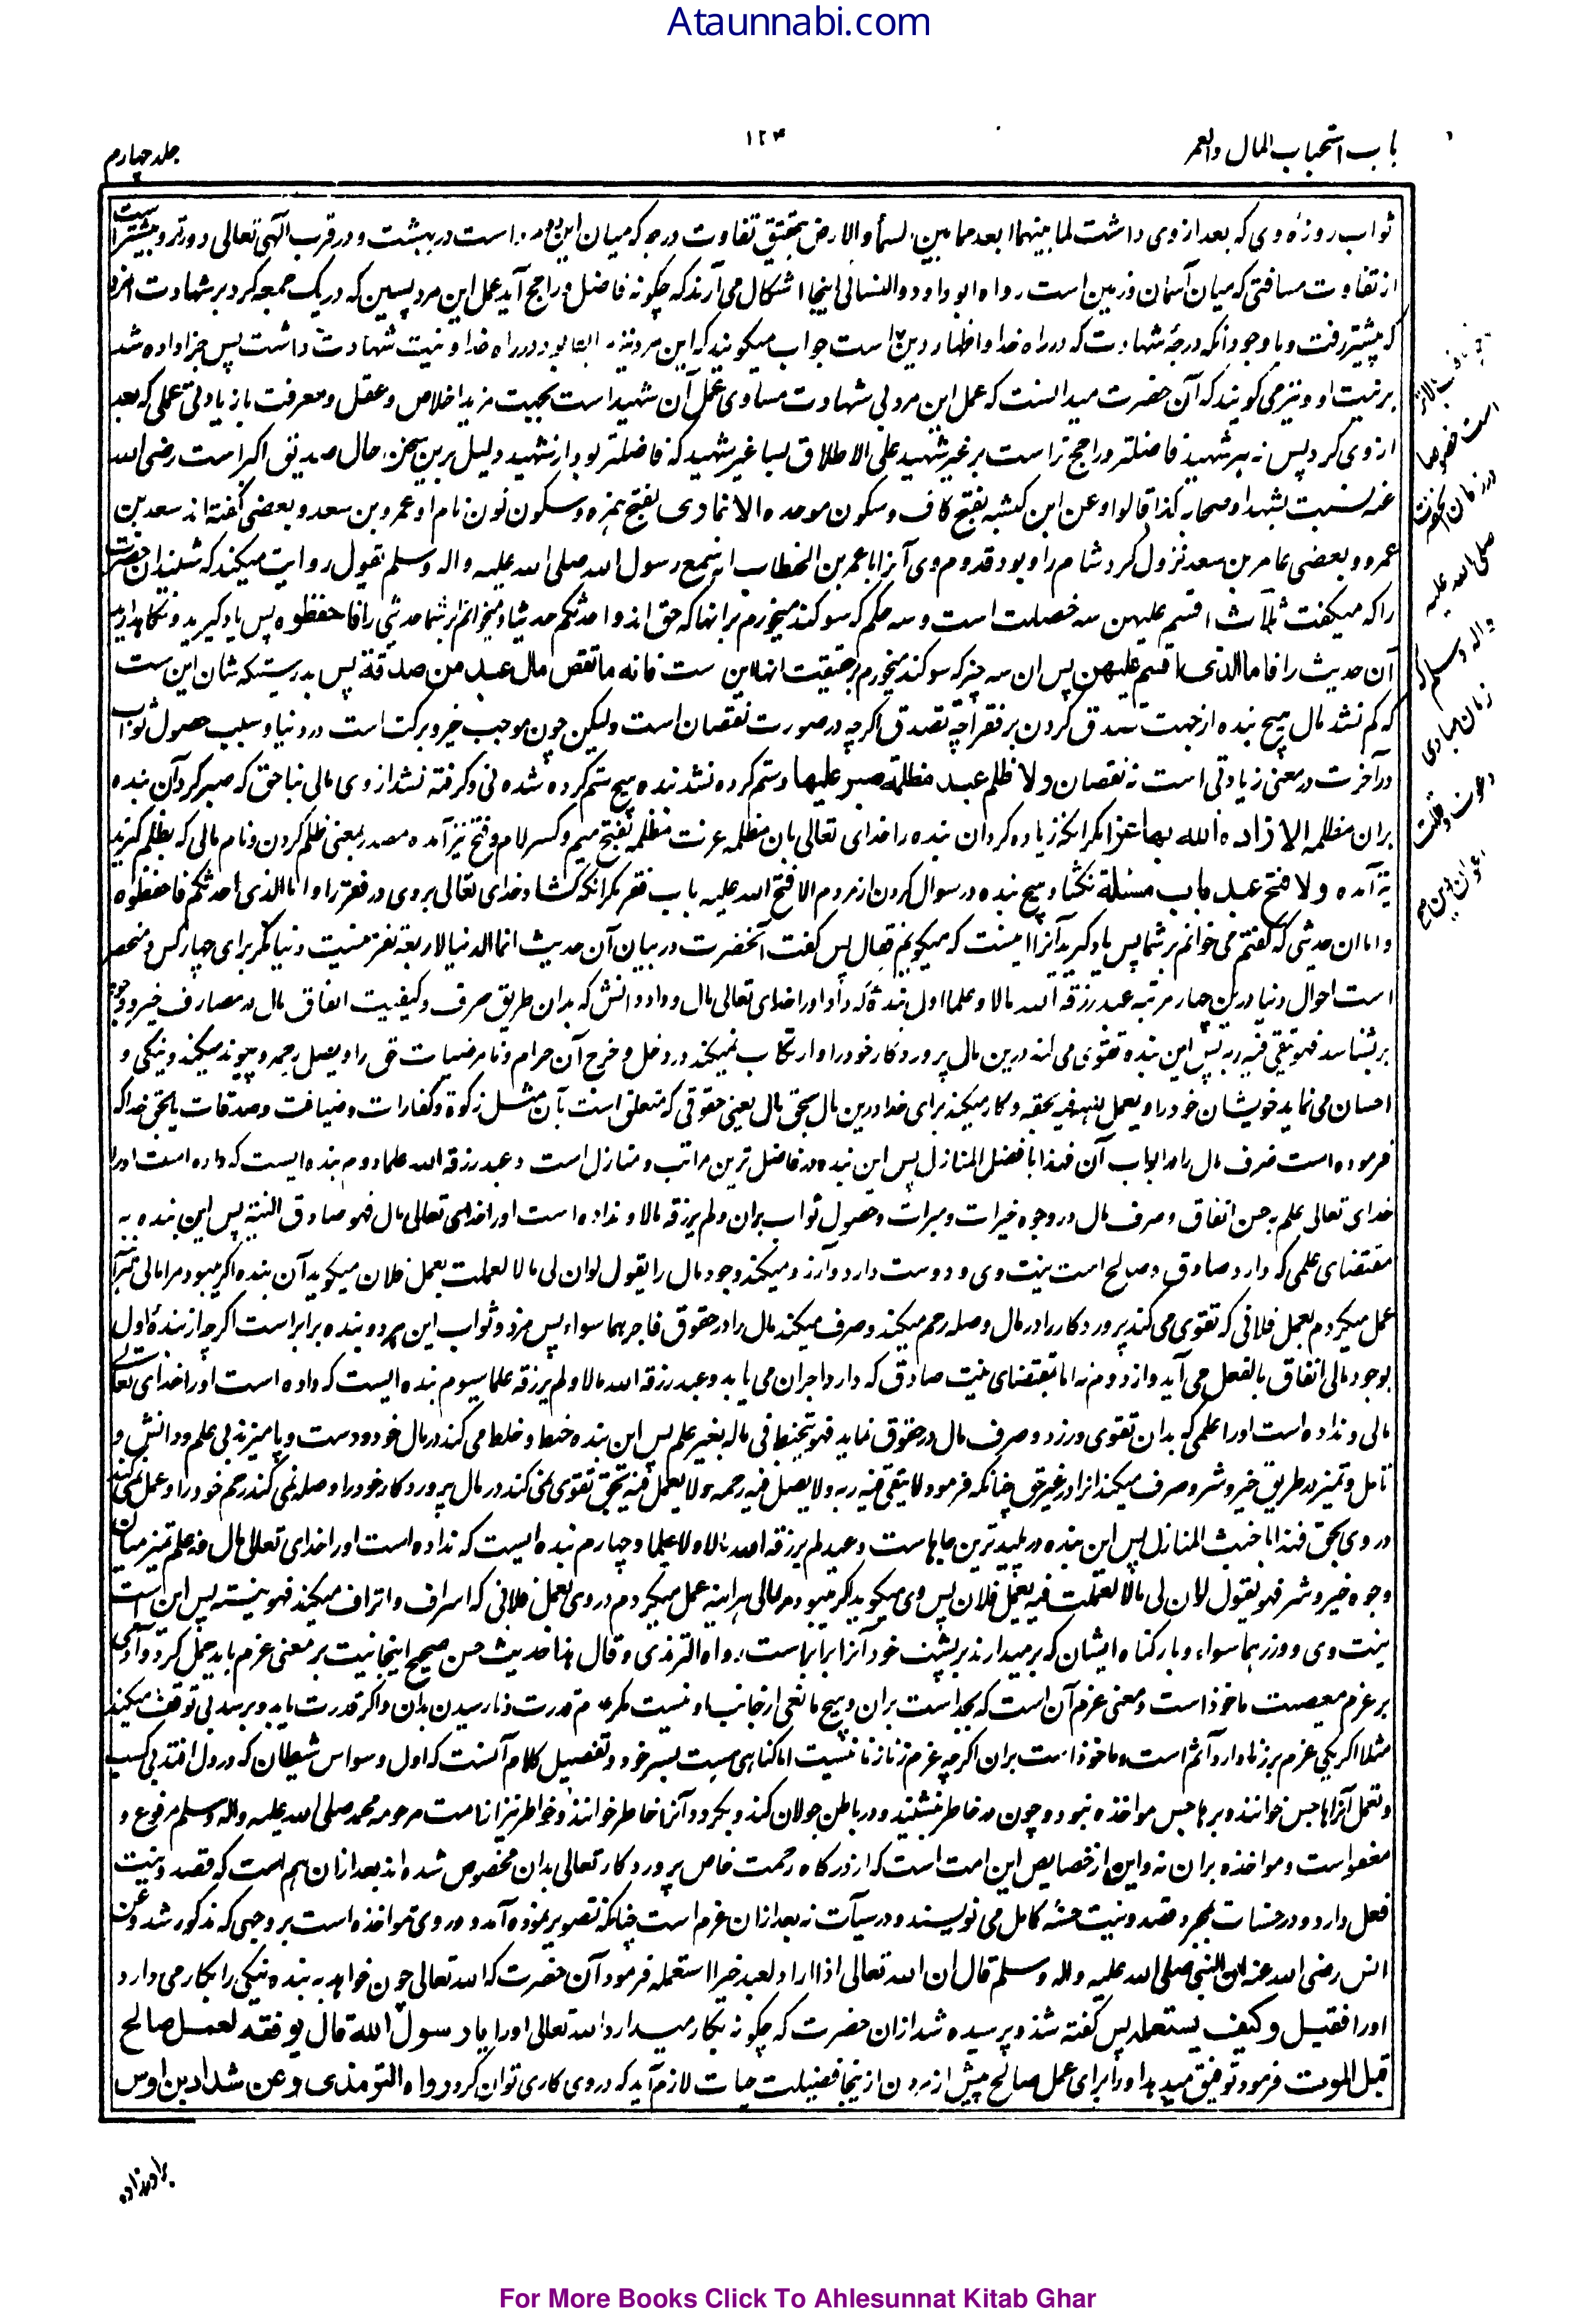 Ataunnabi.com
باب استحباب المال والعمر
۱۲۴
جلد چهارم
ثواب روزه وی که بعد از وی داشت لما بینهما ابعد مما بین السماء والارض بتحقیق تفاوت درجه که میان این است در بهشت و در قرب الهی تعالی دورتر و بیشتر است
از تفاوت مسافتی که میان آسمان و زمین است رواه ابو داود والنسائی اینجا اشکال می آرند که چگونه فاضل و راجح آید عمل این مرد پسین که در یک جمعه کرد بر شهادت
که پیشتر رفت و با وجود آنکه درجهٔ شهادت که در راه خدا و اظهار دین است جواب میگویند که این مرد نیز در راه خدا و نیت شهادت داشت پس جزا داده شد
بر نیت او و نیز می گویند که آن حضرت میدانست که عمل این مرد بی شهادت مساوی عمل آن شهید است بجهت مزید اخلاص و عقل و معرفت با زیادتی عملی که بعد
از وی کرد پس نه هر شهید فاضلتر و راجح تر است بر غیر شهید علی الاطلاق بسا غیر شهید که فاضلتر بود از شهید و دلیل برین سخن حال صدیق اکبر است رضی الله
عنه نسبت بشهداء صحابه کذا قالوا وعن ابن کبشه بفتح کاف و سکون موحده الانماری بفتح همزه و سکون نون نام او عمرو بن سعد و بعضی گفته اند سعد بن
عمرو و بعضی عامر بن سعد نزول کرد شام را و بود قدوم وی آنرا با عمر بن الخطاب انه سمع رسول الله صلی الله علیه واله وسلم یقول روایت میکند که شنید آن حضرت
را که میگفت ثلاث اقسم علیهن سه خصلت است و سه حکم که سوگند میخورم بر آنها که حق اند و احدثکم حدیثا و میخوانم بر شما حدیثی را فاحفظوه پس یاد گیرید و نگاهدارید
آن حدیث را فاما الذی اقسم علیهن پس ان سه چیز که سوگند میخورم بر حقیقت انها این ست فانه ما نقص مال عبد من صدقة پس بدرستیکه شان این ست
که کم نشد مال هیچ بنده از جهت صدق کردن بر فقرا چه تصدق اگرچه در صورت نقصان است ولیکن چون موجب خیر و برکت است در دنیا و سبب حصول ثواب
در آخرت در معنی زیادتی است نه نقصان ولا ظلم عبد مظلمة صبر علیها و ستم کرده نشد بنده هیچ ستم کرده شده نی و گرفته نشد از وی مالی بناحق که صبر کرد آن بنده
بران مظلمه الا زاده الله بها عزا مگر آنکه زیاده گردان بنده را خدای تعالی بان مظلمه عزت مظلمه بفتح میم و کسر لام و فتح نیز آمده مصدر بمعنی ظلم کردن و نام مالی که بظلم گیرند
نیز آمده ولا فتح عبد باب مسئلة نگشاد هیچ بنده در سوال کردن از مردم الا فتح الله علیه باب فقر مگر آنکه گشاد خدای تعالی بر وی در فقر را واما الذی احدثکم فاحفظوه
و اما ان حدیثی که گفتم می خوانم بر شما پس یاد گیرید آنرا اینست که میگویم فقال پس گفت آنحضرت در بیان آن حدیث انما الدنیا لاربعة نفر نیست دنیا مگر برای چهار کس و منحصر
است احوال دنیا درین چهار مرتبه عبد رزقه الله مالا وعلما اول بندهٔ که داد او را خدای تعالی مال و داد دانش که بدان طریق صرف و کیفیت انفاق مال در مصارف خیر و وجوه
بر بشناسد فهو یتقی فیه ربه پس این بنده تقوی می کند درین مال پروردگار خود را و ارتکاب نمیکند در دخل و خرج آن حرام و نامرضیات حق را ویصل رحمه و پیوند میکند و نیکی و
احسان می نماید خویشان خود را ویعمل لله فیه بحقه و کار میکند برای خدا درین مال بحق مال یعنی حقوقی که متعلق است بآن مثل زکوة و کفارات و ضیافت و صدقات یا بحق خدا که
فرموده است صرف مال را در ابواب آن فهذا بافضل المنازل پس این بنده در فاضل ترین مراتب و منازل است وعبد رزقه الله علما دوم بنده ایست که داده است او را
خدای تعالی علم بحسن انفاق و صرف مال در وجوه خیرات و مبرات و حصول ثواب بران ولم یرزقه مالا و نداده است او را خدای تعالی مال فهو صادق النیة پس این بنده به
مقتضای علمی که دارد صادق و صالح است نیت وی و دوست دارد و آرزو میکند وجود مال را یقول لو ان لی مالا لعملت بعمل فلان میگوید آن بنده اگر میبود مرا مالی هر آینه
عمل میکردم بعمل فلانی که تقوی می کند پروردگار را در مال و صله رحم میکند و صرف میکند مال را در حقوق فاجرهما سواء پس مزد و ثواب این هر دو بنده برابر است اگرچه از بندهٔ اول
بوجود مالی انفاق بالفعل می آید و از دوم نه اما بمقتضای نیت صادق که دارد اجران می یابد وعبد رزقه الله مالا ولم یرزقه علما سیوم بنده ایست که داده است او را خدای تعالی
مالی و نداده است او را علمی که بدان تقوی ورزد و صرف مال در حقوق نماید فهو یتخبط فی ماله بغیر علم پس این بنده خبط و خلط می کند در مال خود و دست و پا میزند بی علم و دانش و
تامل و تمیز در طریق خیر و شر و صرف میکند انرا در غیر حق چنانکه فرمود لا یتقی فیه ربه ولا یصل فیه رحمه ولا یعمل فیه بحق تقوی نمی کند در مال پروردگار خود را و صله نمی کند رحم خود را و عمل نمی کند
در وی بحق فهذا باخبث المنازل پس این بنده در پلیدترین جاهاست وعبد لم یرزقه الله مالا ولا علما و چهارم بنده ایست که نداده است او را خدای تعالی مال و نه علم تمیز میان
وجوه خیر و شر فهو یقول لو ان لی مالا لعملت فیه بعمل فلان پس وی میگوید اگر میبود مرا مالی هر اینه عمل میکردم در وی بعمل فلانی که اسراف و اتراف میکند فهو بنیته پس این است
نیت وی ووزرهما سواء و بار گناه ایشان که بر میدارند بر پشت خود آنرا برابر است رواه الترمذی وقال هذا حدیث حسن صحیح اینجا نیت بر معنی عزم باید حمل کرد و آدمی
بر عزم معصیت ماخوذ است و معنی عزم آن است که بجد است بران و هیچ مانعی از جانب او نیست مگر عدم قدرت و نارسیدن بدان و اگر قدرت یابد و برسد بی توقف میکند
مثلا اگر یکی عزم بر زنا دارد آثم است و ماخوذ است بران اگرچه عزم زنا زنا نیست اما گناهی هست بسر خود و تفصیل کلام آنست که اول وسواس شیطان که در دل افتد بی کسب
و تعمل آنرا هاجس خوانند و بر هاجس مواخذه نبود و چون در خاطر نشیند و در باطن جولان کند و بگردد آنرا خاطر خوانند و خواطر نیز از امت مرحومه محمد صلی الله علیه واله وسلم مرفوع و
معفو است و مواخذه بران نه و این از خصایص این امت است که از درگاه رحمت خاص پروردگار تعالی بدان مخصوص شده اند بعد ازان هم است که قصد و نیت
فعل دارد و در حسنات بمجرد قصد و نیت حسنه کامل می نویسند و در سیآت نه بعد ازان عزم است چنانکه تصویر نموده آمد و در وی مواخذه است بر وجهی که مذکور شد وعن
انس رضی الله عنه ان النبی صلی الله علیه واله وسلم قال ان الله تعالی اذا اراد لعبد خیرا استعمله فرمود آن حضرت که الله تعالی چون خواهد به بنده نیکی را بکار می دارد
او را فقیل وکیف یستعمله پس گفته شد و پرسیده شد ازان حضرت که چگونه بکار میدارد الله تعالی او را یا رسول الله قال یوفقه لعمل صالح
قبل الموت فرمود توفیق میدهد او را برای عمل صالح پیش از مردن ازینجا فضیلت حیات لازم آید که در وی کاری توان کرد رواه الترمذی وعن شداد بن اوس
است خصوصا
در زمان آنحضرت
صلی الله علیه
واله وسلم که
زمان مبادی
دعوت و قلت
اعوان دین
For More Books Click To Ahlesunnat Kitab Ghar